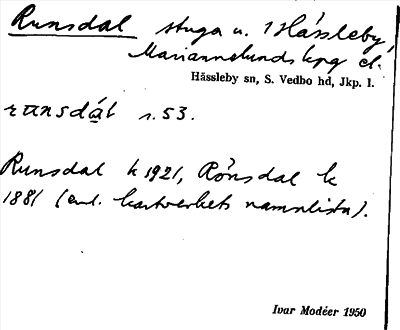 Runsdal stuga u. 1 Hässleby,
Mariannelunds kpg el.
Hässleby sn, S. Vedbo hd, Jkp. l.
runsdal s. 53.
Runsdal k 1921, Rönsdal k
1881 (enl. kartverkets namnlista).
Ivar Modéer 1950